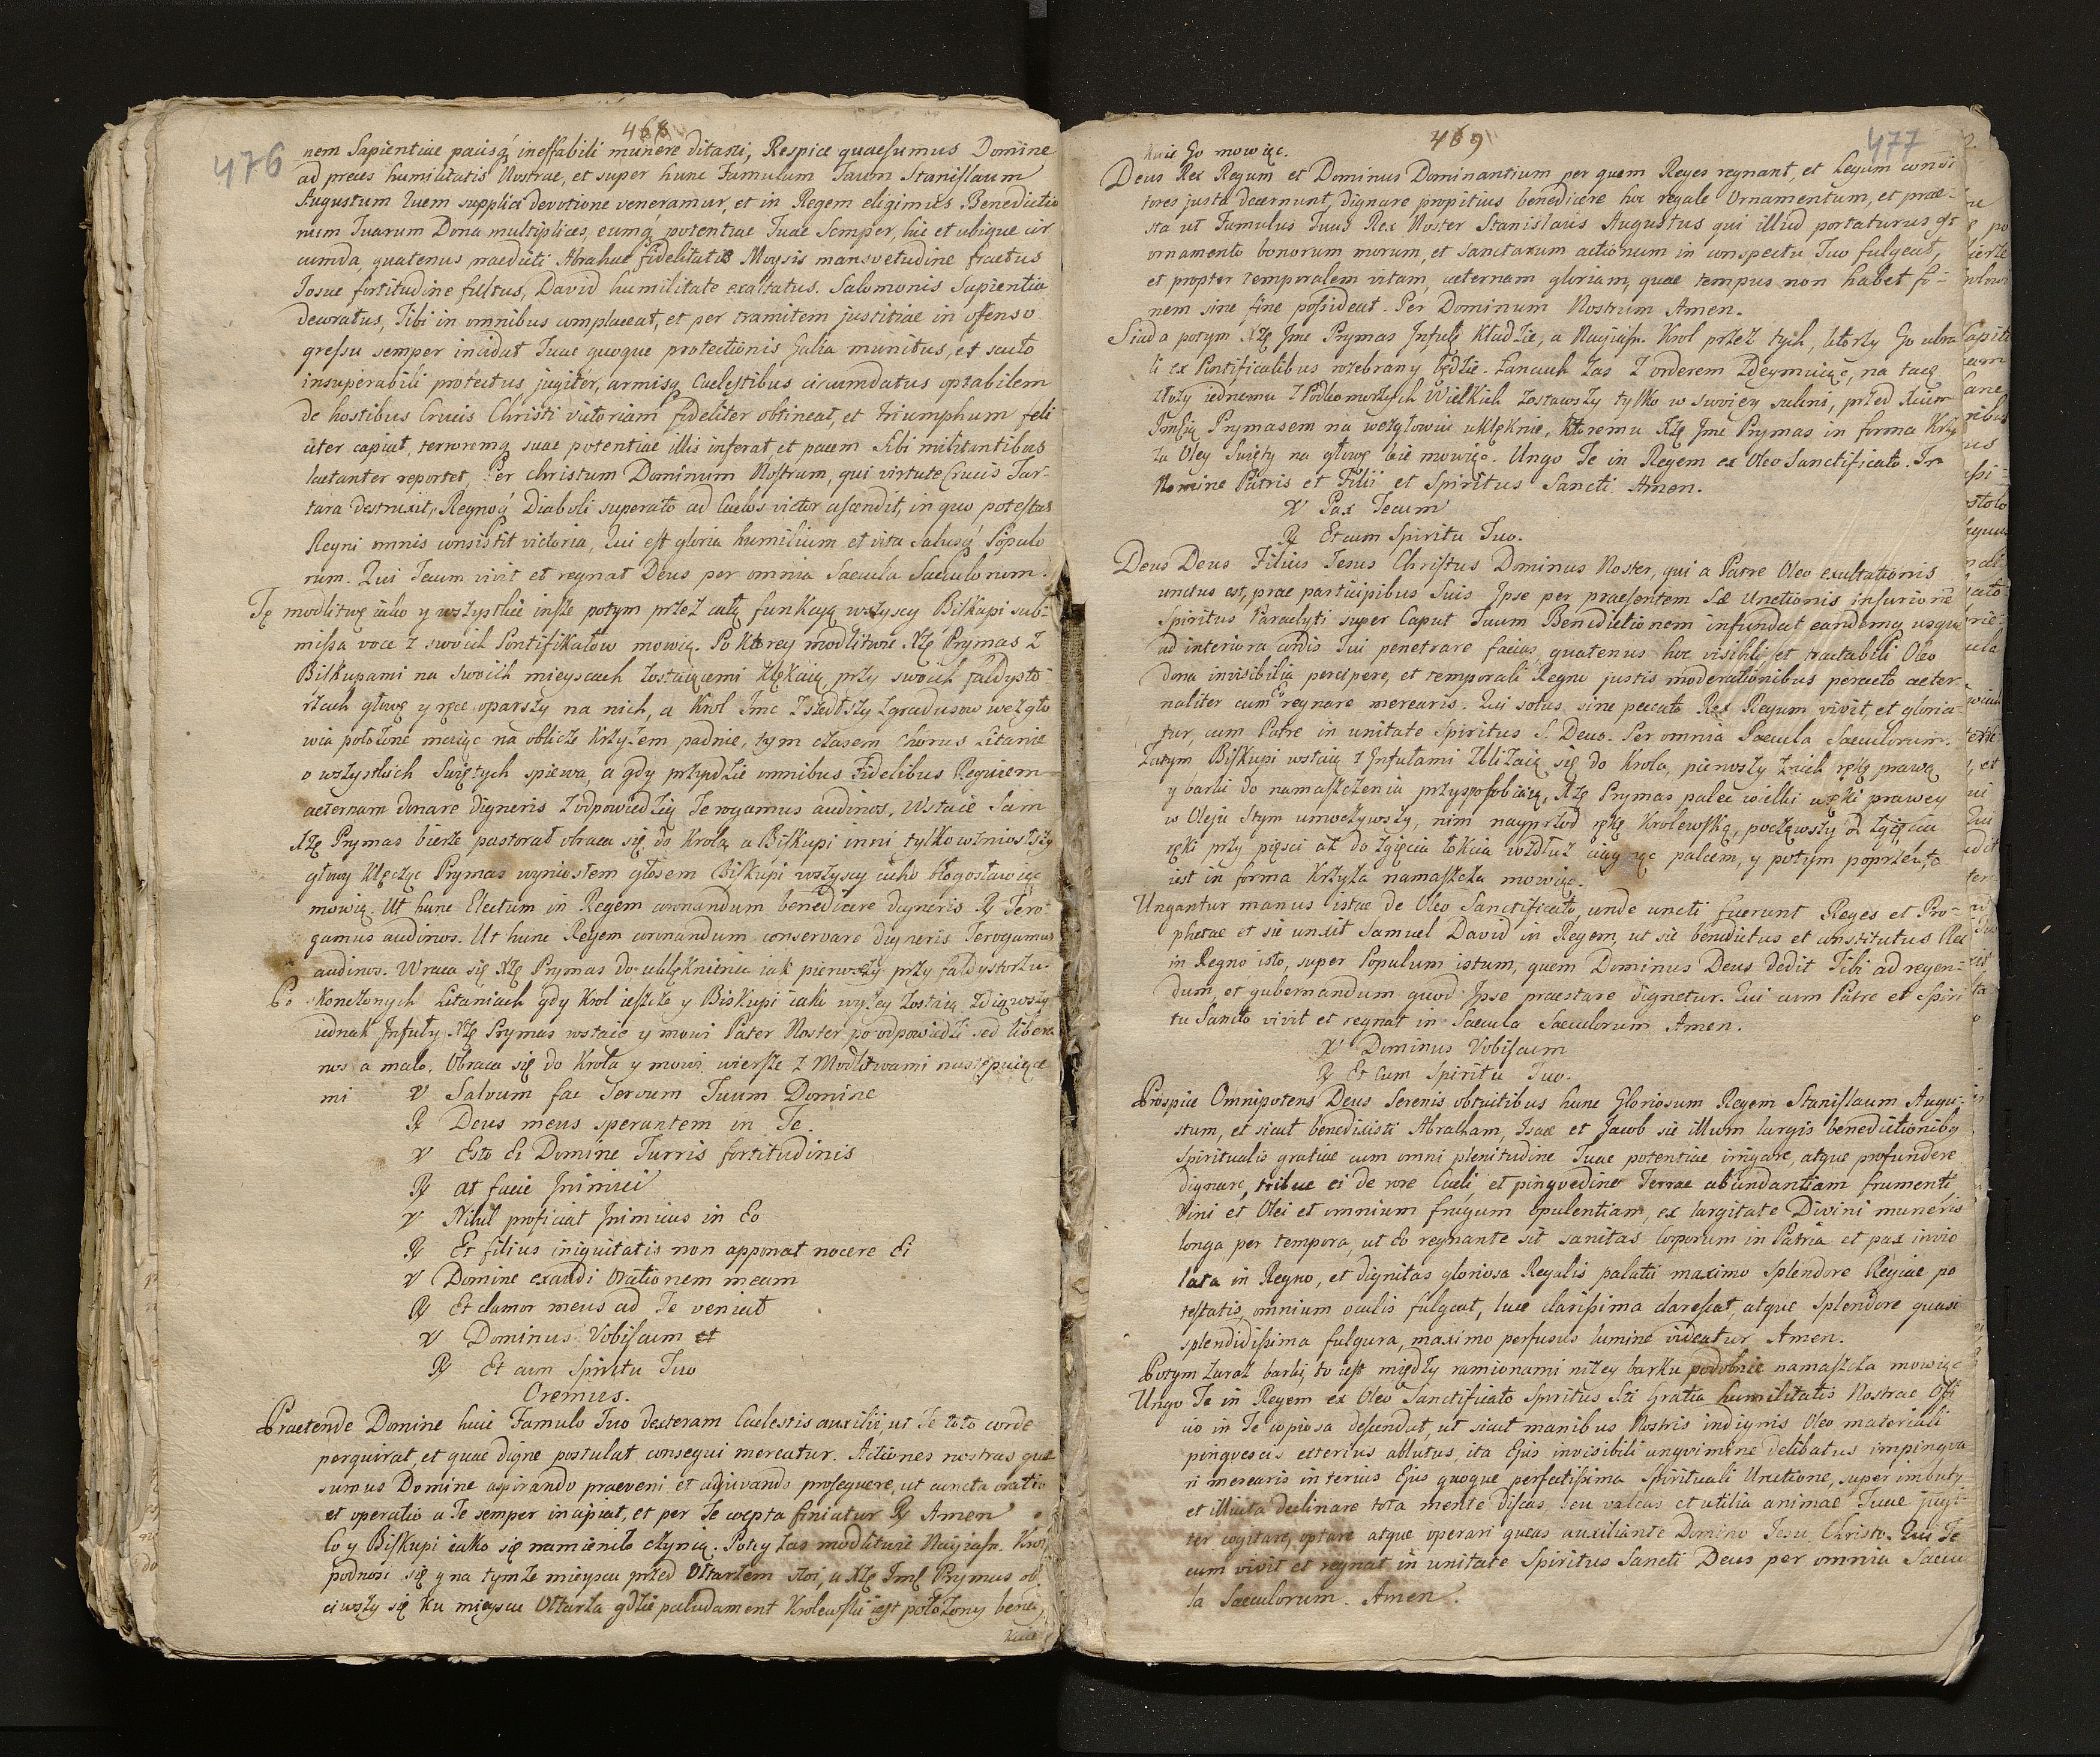 468
476
nem Sapientiae pacisq́ ineffabili munere ditasti, Respice quaesumus Domine
ad preces humilitatis Nostrae, et super hunc Famulum Tuum Stanislaum
Augustum Quem supplici devotione veneramur, et in Regem eligimus Benedictio
num Tuarum Dona multiplices, eumq́ potentiae Tuae Semper, hic et ubique cir
cumda, quatenus praedicti Abrahae fidelitatis Moysis mansvetudine fraetus
Josue fortitudine fultus, David humilitate exaltatus. Salomonis Sapientia
decoratus, Tibi in omnibus complaceat, et per tramitem justitiae in offenso
gressu semper incidat Tuae quoque protectionis Galea munitus, et scuto
insuperabili protectus jugiter, armisq́ Caelestibus circumdatus optabilem
de hostibus Crucis Christi victoriam fideliter obtineat, et triumphum feli
citer capiat, terroremq́ suae potentiae illis inferat, et pacem Sibi militantibus
laetanter reportet, Per Christum Dominum Nostrum, qui virtute Crucis Tar-
tara destruxit, Regnoq́ Diaboli superato ad Caelos victor ascendit, in quo potestas
Regni omnis consistit victoria, Qui est gloria humilium et vita Salusq́ Populo
rum. Qui Tecum vivit et regnat Deus per omnia Saecula Saeculorum.
Tę modlitwę iako y wszystkie insze potym przez całą funkcyą wszyscy Biskupi sub-
missa voce z swoich Pontifikałow mowią. Po ktorey modlitwie Xżę Prymas z
Biskupami na swoich mieyscach zostaiącemi klękaią przy swoich faldysto-
rzach głowę y ręce oparszy na nich, a Krol Jmc zszedłszy z gradusow wezgło
wia położone maiąc na oblicze krzyżem padnie, tym czasem Chorus Litanie
o wszystkich Swiętych spiewa, a gdy przyidzie omnibus Fidelibus Requiem
aeternam donare digneris z odpowiedzią Te rogamus audi nos. Wstaie Sam
Xżę Prymas bierze pastorał obraca się do Krola, a Biskupi inni tylko wzniosłszy
głowy klęcząc Prymas wyniosłem głosem Biskupi wszyscy cicho błogosławiąc
mowią. Ut hunc Electum in Regem coronandum benedicere digneris ℟ Te ro-
gamus audi nos. Ut hunc Regem coronandum conservare digneris Te rogamus
audi nos. Wraca się Xżę Prymas do uklęknienia iak pierwszy przy faldystorzu.
Po skonczonych Litaniach gdy Krol ieszcze y Biskupi iak wyżey zostaią zdiąwszy
iednak Infuły Xżę Prymas wstaie y mowi Pater Noster po odpowiedzi sed libera
nos a malo. Obraca się do Krola y mowi wiersze z Modlitwami następuiące
mi ℣ Salvum fac Servum Tuum Domine
℟ Deus meus sperantem in Te.
℣ Esto Ei Domine Turris fortitudinis
℟ at facie Inimici
℣ Nihil proficiat Inimicus in Eo
℟ Et filius iniquitatis non apponat nocere Ei
℣ Domine exaudi Orationem meam
℟ Et clamor meus ad Te veniat
℣ Dominus Vobiscum et
℟ Et cum Spiritu Tuo
Oremus.
Praetende Domine huic Famulo Tuo dexteram Caelestis auxilii, ut Te toto corde
perquirat, et quae digne postulat consequi mereatur. Actiones nostras quae
sumus Domine aspirando praeveni et adjuvando prosequere, ut cuncta oratio
et operatio a Te semper incipiat, et per Te coepta finiatur ℟ Amen
Co y Biskupi iako się namieniło czynią. Po tey zas modlitwie Nayiasn. Krol
podnosi się y na tymże mieyscu przed Ołtarzem stoi, a Xżę Jmć Prymas ob
ciwszy się ku mieyscu Ołtarza gdzie paludament Krolewski iest położony bene,
kuie
469
477
kuie Go mowiąc.
Deus Rex Regum et Dominus Dominantium per quem Reges regnant, et Legum condi
tores justa decernunt, dignare propitius benedicere hoc regale Ornamentum, et prae-
sta ut Famulus Tuus Rex Noster Stanislaus Augustus qui illud portaturus est
ornamento bonorum morum, et sanctarum actionum in conspectu Tuo fulgeat,
et propter temporalem vitam, aeternam gloriam, quae tempus non habet fi-
nem sine fine possideat. Per Dominum Nostrum Amen.
Siada potym Xżę Jmc Prymas Infułę kładzie, a Nayiasn. Krol przez tych, ktorzy Go ubra
li ex Pontificalibus rozebrany będzie. Łancuch zas z orderem zdeymuiąc, na tacę
złoży iednemu z Podkomorzych Wielkich zostawszy tylko w swoiey sukni, przed Xciem
Jmcią Prymasem na wezgłowiu uklęknie, ktoremu Xżę Jmc Prymas in forma Krzy
ża Oley Swięty na głowę leie mowiąc. Ungo Te in Regem ex Oleo Sanctificato. In
Nomine Patris et Filii et Spiritus Sancti. Amen.
℣ Pax Tecum
℟ Et cum Spiritu Tuo.
Deus Deus Filius Jesus Christus Dominus Noster, qui a Patre Oleo exultationis
unctus est, prae participibus Suis Ipse per praesentem Sae Unctionis infusione
Spiritus Paraclyti super Caput Tuum Benedictionem infundat eandemq́ usque
ad interiora cordis Tui penetrare faciat, quatenus hoc visibili et tractabili Oleo
dona invisibilia percipere, et temporali Regno justis moderationibus peracto aeter
naliter cum Eo regnare merearis. Qui solus, sine peccato Rex Regum vivit, et gloria-
tur, cum Patre in unitate Spiritus S. Deus. Per omnia Saecula Saeculorum.
Zatym Biskupi wstaią z Infułami zbliżaią się do Krola, pierwszy z nich rękę prawą
y barki do namaszczenia przysposobiaią, Xżę Prymas palec wielki u ręki prawey
w Oleju Stym umoczywszy, nim nayprzod rękę Krolewską, począwszy od zgięcia
ręki przy pięsci aż do zgięcia łokcia wzdłuż ciągnąc palcem, y potym poprzek, to
iest in forma Krzyża namaszcza mowiąc.
Ungantur manus istae de Oleo Sanctificato, unde uncti fuerunt Reges et Pro-
phetae et sic unxit Samuel David in Regem, ut sis benedictus et constitutus Rex
in Regno isto, super Populum istum, quem Dominus Deus dedit Tibi ad regen-
dum et gubernandum quod Ipse praestare dignetur. Qui cum Patre et Spiri
tu Sancto vivit et regnat in Saecula Saeculorum Amen.
℣ Dominus Vobiscum
℟ Et Cum Spiritu Tuo.
Prospice Omnipotens Deus Serenis obtuitibus hunc Gloriosum Regem Stanislaum Augu-
stum, et sicut benedixisti Abraham, Isaac et Jacob sic illum largis benedictionibq
Spiritualis gratiae cum omni plenitudine Tuae potentiae irrigare, atque profundere
dignare, tribue ei de rore Caeli, et pingvedine Terrae abundantiam frumenti
Vini et Olei et omnium frugum opulentiam, ex largitate Divini muneris
longa per tempora, ut Eo regnante sit sanitas Corporum in Patria et pax invio
lata in Regno, et dignitas gloriosa Regalis palatii maximo splendore Regiae po
testatis, omnium oculis fulgeat, luce clarissima clarescat, atque splendore quasi
splendidissima fulgura, maximo perfusus lumine videatur Amen.
Potym zaraz barki, to iest między ramionami niżey karku podobnie namaszcza mowiąc
Ungo Te in Regem ex Oleo Sanctificato Spiritus Sti Gratia humilitatis Nostrae Offi
cio in Te copiosa descendat, ut sicut manibus Nostris indignis Oleo materiali
pingvescis exterius ablutus, ita Ejus invisibili ungvimine delibatus impingva
ri merearis interius Ejus quoque perfectissima Spirituali Unctione, super imbuty
et illicita declinare tota mente discas, seu valeas et utilia animae Tuae jugi-
ter cogitare, optare atque operari queas auxiliante Domino Jesu Christo. Qui Te
cum vivit et regnat in unitate Spiritus Sancti Deus per omnia Saecu
la Saeculorum. Amen.